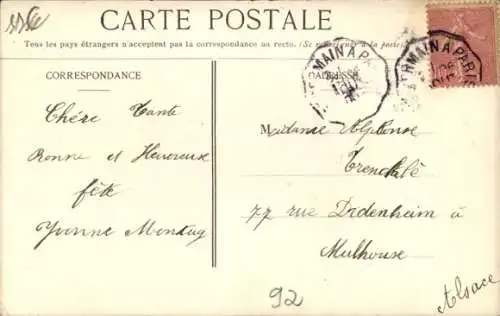 CARTE POSTALE
Tous les pays étrangers n'acceptent pas la correspondance au recto. (Se renseigner à la poste).
CORRESPONDANCE
Chére Tante
Bonne et Heureuse
fête
Yvonne Montag
ADRESSE
Madame Alphonse
Trenchlé
77 rue Didenheim à
Mulhouse
Alsace
92